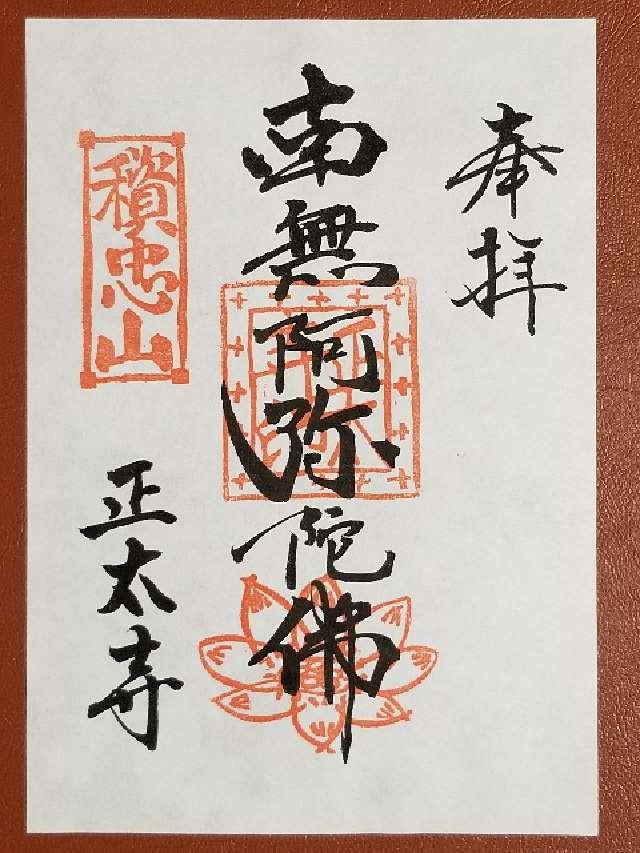 奉拝
南無阿弥陀佛
積忠山
正太寺